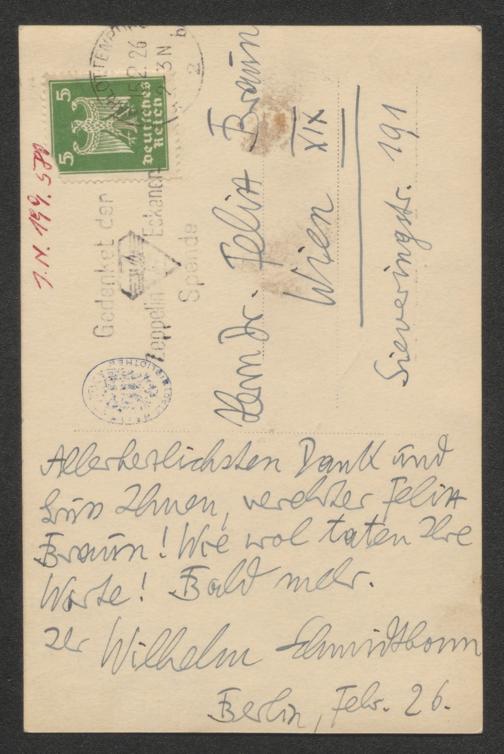 Allerherzlichsten Dank und
Gruss Ihnen, verehrter Felix
Braun! Wie wol taten Ihre
Worte! Bald mehr.
Ihr Wilhelm Schmidtbonn
Berlin, Febr. 26.
Herrn Dr. Felix Braun
Wien XIX
Sieveringstr. 191
5 Deutsches Reich 5
26
Gedenket der
Zeppelin Eckener
Spende
BIBLIOTHEK
I.N. 199.